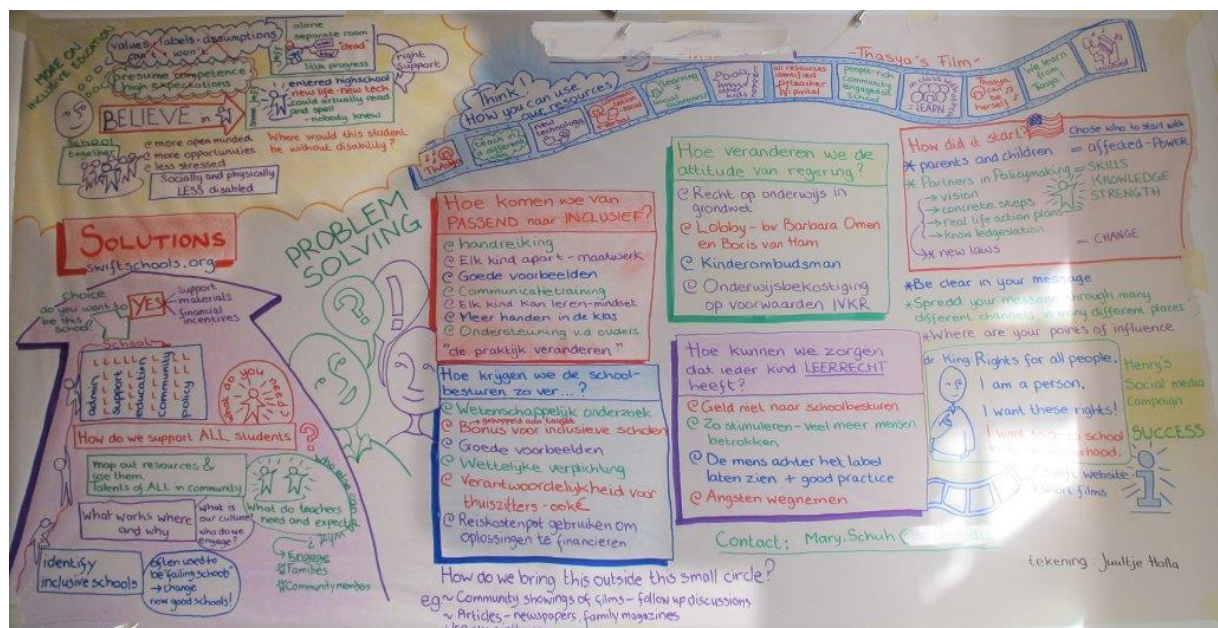 MORE ON
INCLUSIVE EDUCATION
values-labels-assumptions
can't won't
presume competence
high expectations
BELIEVE in
School
together
@ more open minded
@ more opportunities
@ less stressed
Socially and physically
LESS disabled
alone
separate room
"dead"
little progress
right
support
entered highschool
new life-new tech
could actually read
and spell
-nobody knew
Where would this student
be without disability?
Think!
How you can use
our resources
-Thasya's Film-
Thasya
teach in
a different
way
new
technology
learning
+
social
awareness
other
kids
all resources
identified
pivotal
people-rich
community
engaged at
school
in class
= LEARN
Thasya
can be
herself
We learn
from
included
SOLUTIONS
swiftschools.org
choice
do you want to
be this
school?
YES
support
materials
financial
incentives
School
admin
support
educating
community
policy
what do you need?
How do we support ALL students
?
map out resources &
use them.
Talents of ALL in community
What works where
and why
What is
our culture?
who do we
engage?
What do teachers
need and expect
→ Engage
Families
Community membes
identify
inclusive schools
often used to
be "failing schools"
→ change
now good schools!
PROBLEM
SOLVING
Hoe komen we van
PASSEND naar INCLUSIEF?
@ handreiking
@ Elk kind apart - maatwerk
@ Goede voorbeelden
@ Communicatietraining
@ Elk kind kan leren-mindset
@ Meer handen in de klas
@ Ondersteuning v.d ouders
"de praktijk veranderen"
Hoe krijgen we de school-
besturen zo ver...?
@ Wetenschappelijk onderzoek
@ Bonus voor inclusieve scholen
@ Goede voorbeelden
@ Wettelijke verplichting
@ Verantwoordelijkheid voor
thuiszitters - ook €
@ Reiskostenpot gebruiken om
oplossingen te financieren
Hoe veranderen we de
attitude van regering?
@ Recht op onderwijs in
grondwet
@ Lobby - bv Barbara Omen
en Boris van Ham
@ Kinderombudsman
@ Onderwijsbekostiging
op voorwaarden IVRK
Hoe kunnen we zorgen
dat ieder kind LEERRECHT
heeft?
@ Geld niet naar schoolbesturen
@ Zo stimuleren - veel meer mensen
betrokken
@ De mens achter het label
laten zien + good practice
@ Angsten wegnemen
How did it start?
Chose who to start with
* parents and children
= affected-POWER
* Partners in Policymaking
= SKILLS
KNOWLEDGE
STRENGTH
→ vision
→ concrete steps
→ real life action plans
→ knowledgeslation
→* new laws
= CHANGE
*Be clear in your message
*Spread your message through many
different channels in many different places
*Where are your points of influence
dr. King Rights for all people.
I am a person.
I want these rights!
I want to go to school
Henry's
Social media
Campaign
SUCCESS
website
short films
i
Contact: Mary.Schuh
tekening: Juultje Holla
How do we bring this outside this small circle?
eg ~ Community showings of films - follow up discussions
~ Articles - newspapers, family magazines